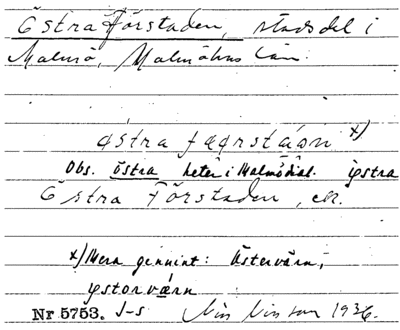 Östra Förstaden, stadsdel i
Malmö, Malmöhus län.
östra fœrstáən x)
Obs. östra heter i Malmödial. ystra
Östra Förstaden, ek.
x) Mera genuint: Östervärn,
ystorværn
Nr 5753. J-s Nils Nilsson 1936.